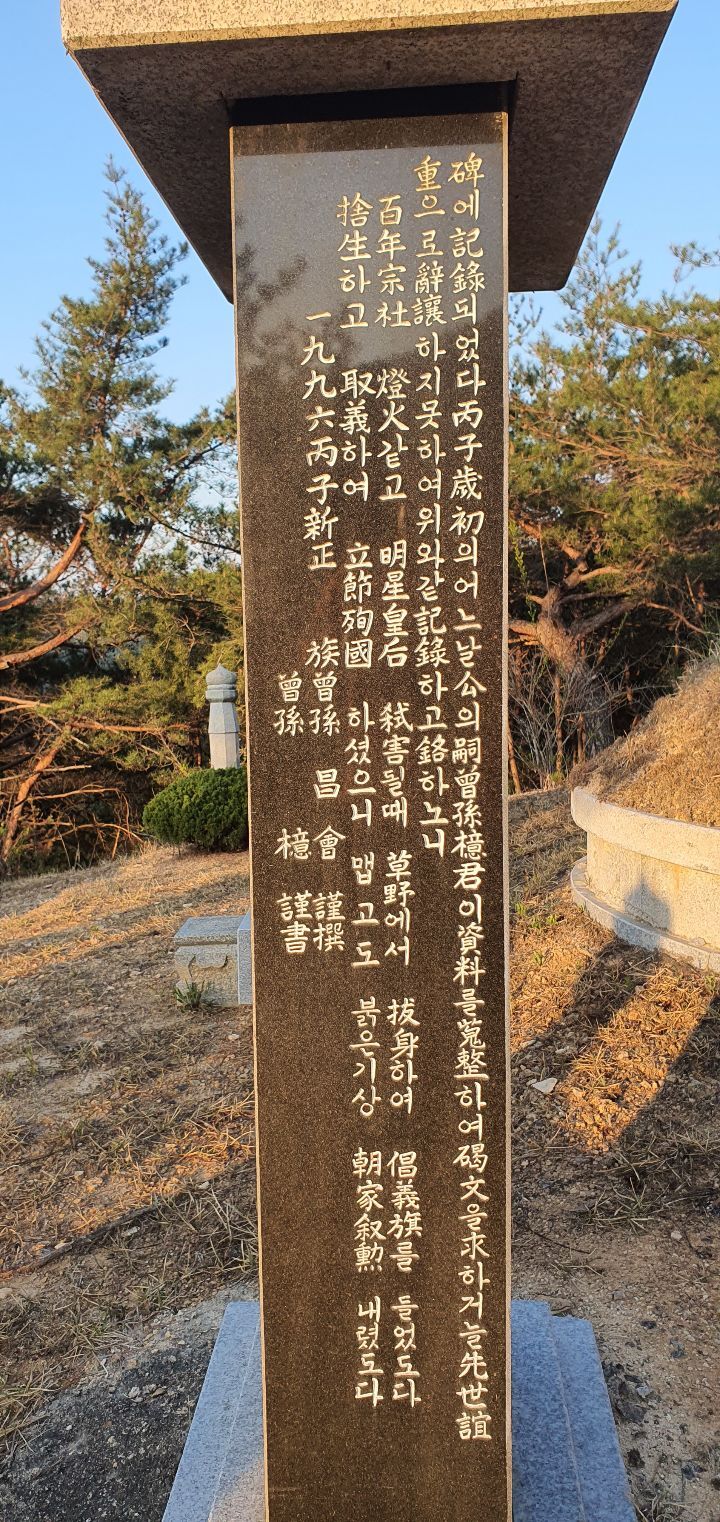 碑에記錄되었다丙子歲初의어느날公의嗣曾孫檍君이資料를蒐整하여碣文을求하거늘先世誼
重으로辭讓하지못하여위와같記錄하고銘하노니
百年宗社 燈火같고 明星皇后 弑害될때 草野에서 拔身하여 倡義旗를 들었도다
捨生하고 取義하여 立節殉國 하셨으니 맵고도 붉은기상 朝家叙勳 내렸도다
一九九六丙子新正 族曾孫 昌會 謹撰
曾孫 檍 謹書